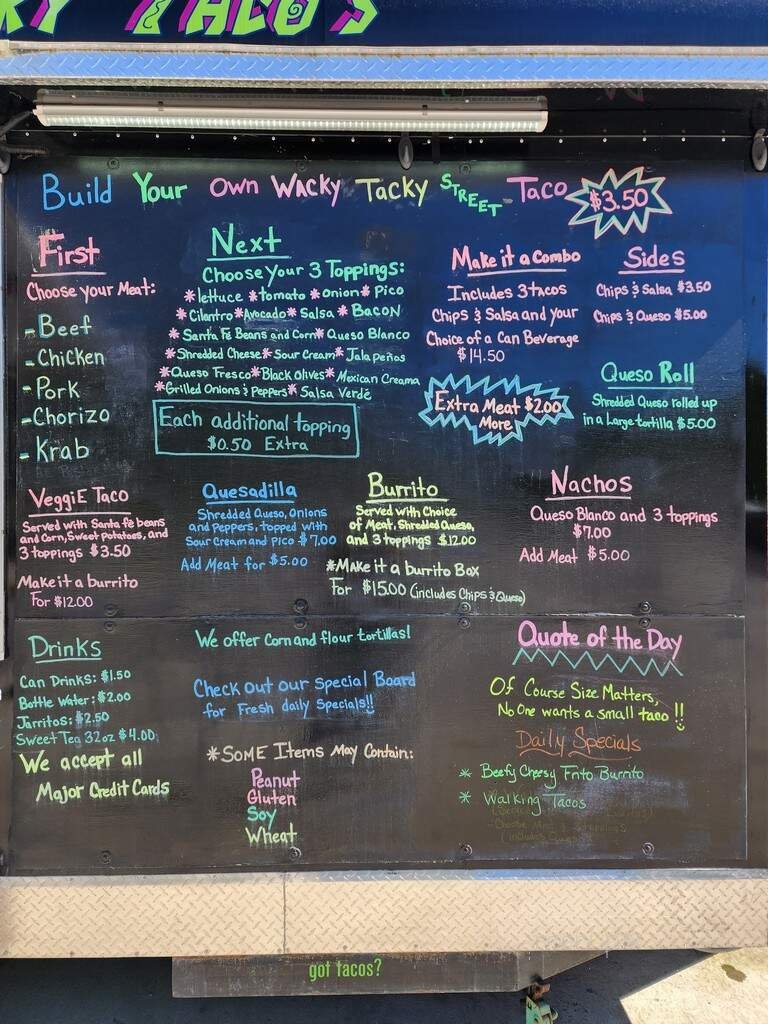 KY TACO'S
Build Your Own Wacky Tacky Street Taco $3.50
First
Choose your Meat:
- Beef
- Chicken
- Pork
- Chorizo
- Krab
Next
Choose Your 3 Toppings:
*lettuce *tomato *onion *Pico
*Cilantro *Avocado *Salsa *Bacon
*Santa Fe Beans and Corn *Queso Blanco
*Shredded Cheese *Sour Cream *Jalapeños
*Queso Fresco *Black Olives *Mexican Creama
*Grilled Onions & Peppers *Salsa Verde
Each additional topping
$0.50 Extra
Make it a Combo
Includes 3 Tacos
Chips & Salsa and your
Choice of a Can Beverage
$14.50
Extra Meat $2.00
More
Sides
Chips & Salsa $3.50
Chips & Queso $5.00
Queso Roll
Shredded Queso rolled up
in a Large tortilla $5.00
VeggiE Taco
Served with Santa fe beans
and Corn, Sweet Potatoes, and
3 toppings $3.50
Make it a burrito
For $12.00
Quesadilla
Shredded Queso, Onions
and Peppers, topped with
Sour Cream and Pico $7.00
Add Meat for $5.00
Burrito
Served with Choice
of Meat, Shredded Queso,
and 3 toppings $12.00
*Make it a burrito Box
For $15.00 (includes Chips & Queso)
Nachos
Queso Blanco and 3 toppings
$7.00
Add Meat $5.00
Drinks
Can Drinks: $1.50
Bottle Water: $2.00
Jarritos: $2.50
Sweet Tea 32oz $4.00
We accept all
Major Credit Cards
We offer Corn and flour tortillas!
Check out our Special Board
for Fresh daily Specials!!
*Some Items May Contain:
Peanut
Gluten
Soy
Wheat
Quote of the Day
Of Course Size Matters,
No One wants a small taco!!
Daily Specials
* Beefy Cheesy Frito Burrito
* Walking Tacos
got tacos?